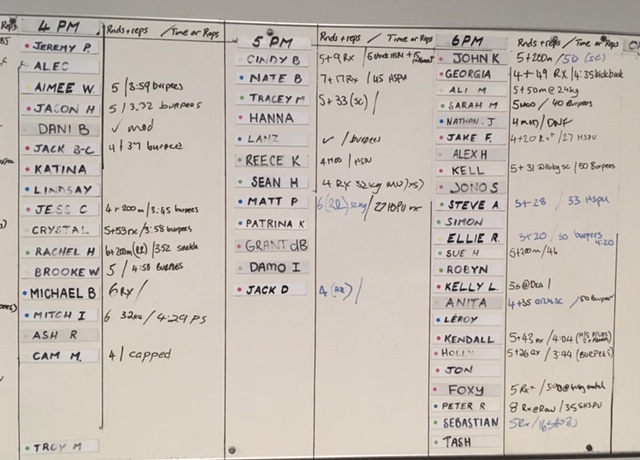 Reps
4 PM
Rnds + reps / Time or Reps
JEREMY P.
ALEC
AIMEE W. 5 / 3:59 burpees
JASON H 5 / 3:32 burpees
DANI B ✓ mod
JACK B-C 4 / 37 burpees
KATINA
LINDSAY
JESS C 4 + 200m / 3:45 burpees
CRYSTAL 5+53 rx / 3:58 burpees
RACHEL H 6+200m (RR) / 3:52
BROOKE W 5 / 4:58 Burpees
MICHAEL B 6 Rx /
MITCH I 6 32kg / 4:29 PS
ASH R
CAM M. 4 / capped
TROY M
5 PM
Rnds + reps / Time or Reps
CINDY B 5+9 Rx /
NATE B 7+17 Rx / 45 HSPU
TRACEY M 5+33 (sc) /
HANNA
LANZ ✓ / burpees
REECE K 4 MOD / HSW
SEAN H 4 RX 32kg
MATT P 6 (RR) / 27 HSPU rx
PATRINA K
GRANT dB
DAMO I
JACK D 4 (RR) /
6 PM
Rnds + reps / Time or Reps
JOHN K 5+200m / 50 (sc)
GEORGIA 4 + 49 Rx / 4:35 kickback
ALI M 5+50m @ 24kg
SARAH M 5 MOD / 40 Burpees
NATHAN. J 4 mod / DNF
JAKE F. 4+20 Rx+ / 27 HSPU
ALEX H
KELL 5+31 sc / 50 Burpees
JONO S
STEVE A. 5+28 / 33 HSPU
SIMON
ELLIE R. 5+20 / 50 burpees 4:20
SUE H 5+200m / 46
ROBYN
KELLY L.
ANITA 4+35 sc / 50 Burpees
LEROY
KENDALL 5+43 rx / 4:04
HOLLY 5+26 Rx / 3:44 (BURPEES)
JON
FOXY 5 Rx+ /
PETER R 8 Rx @ Raw / 35 SHSPU
SEBASTIAN 5 Rx /
TASH